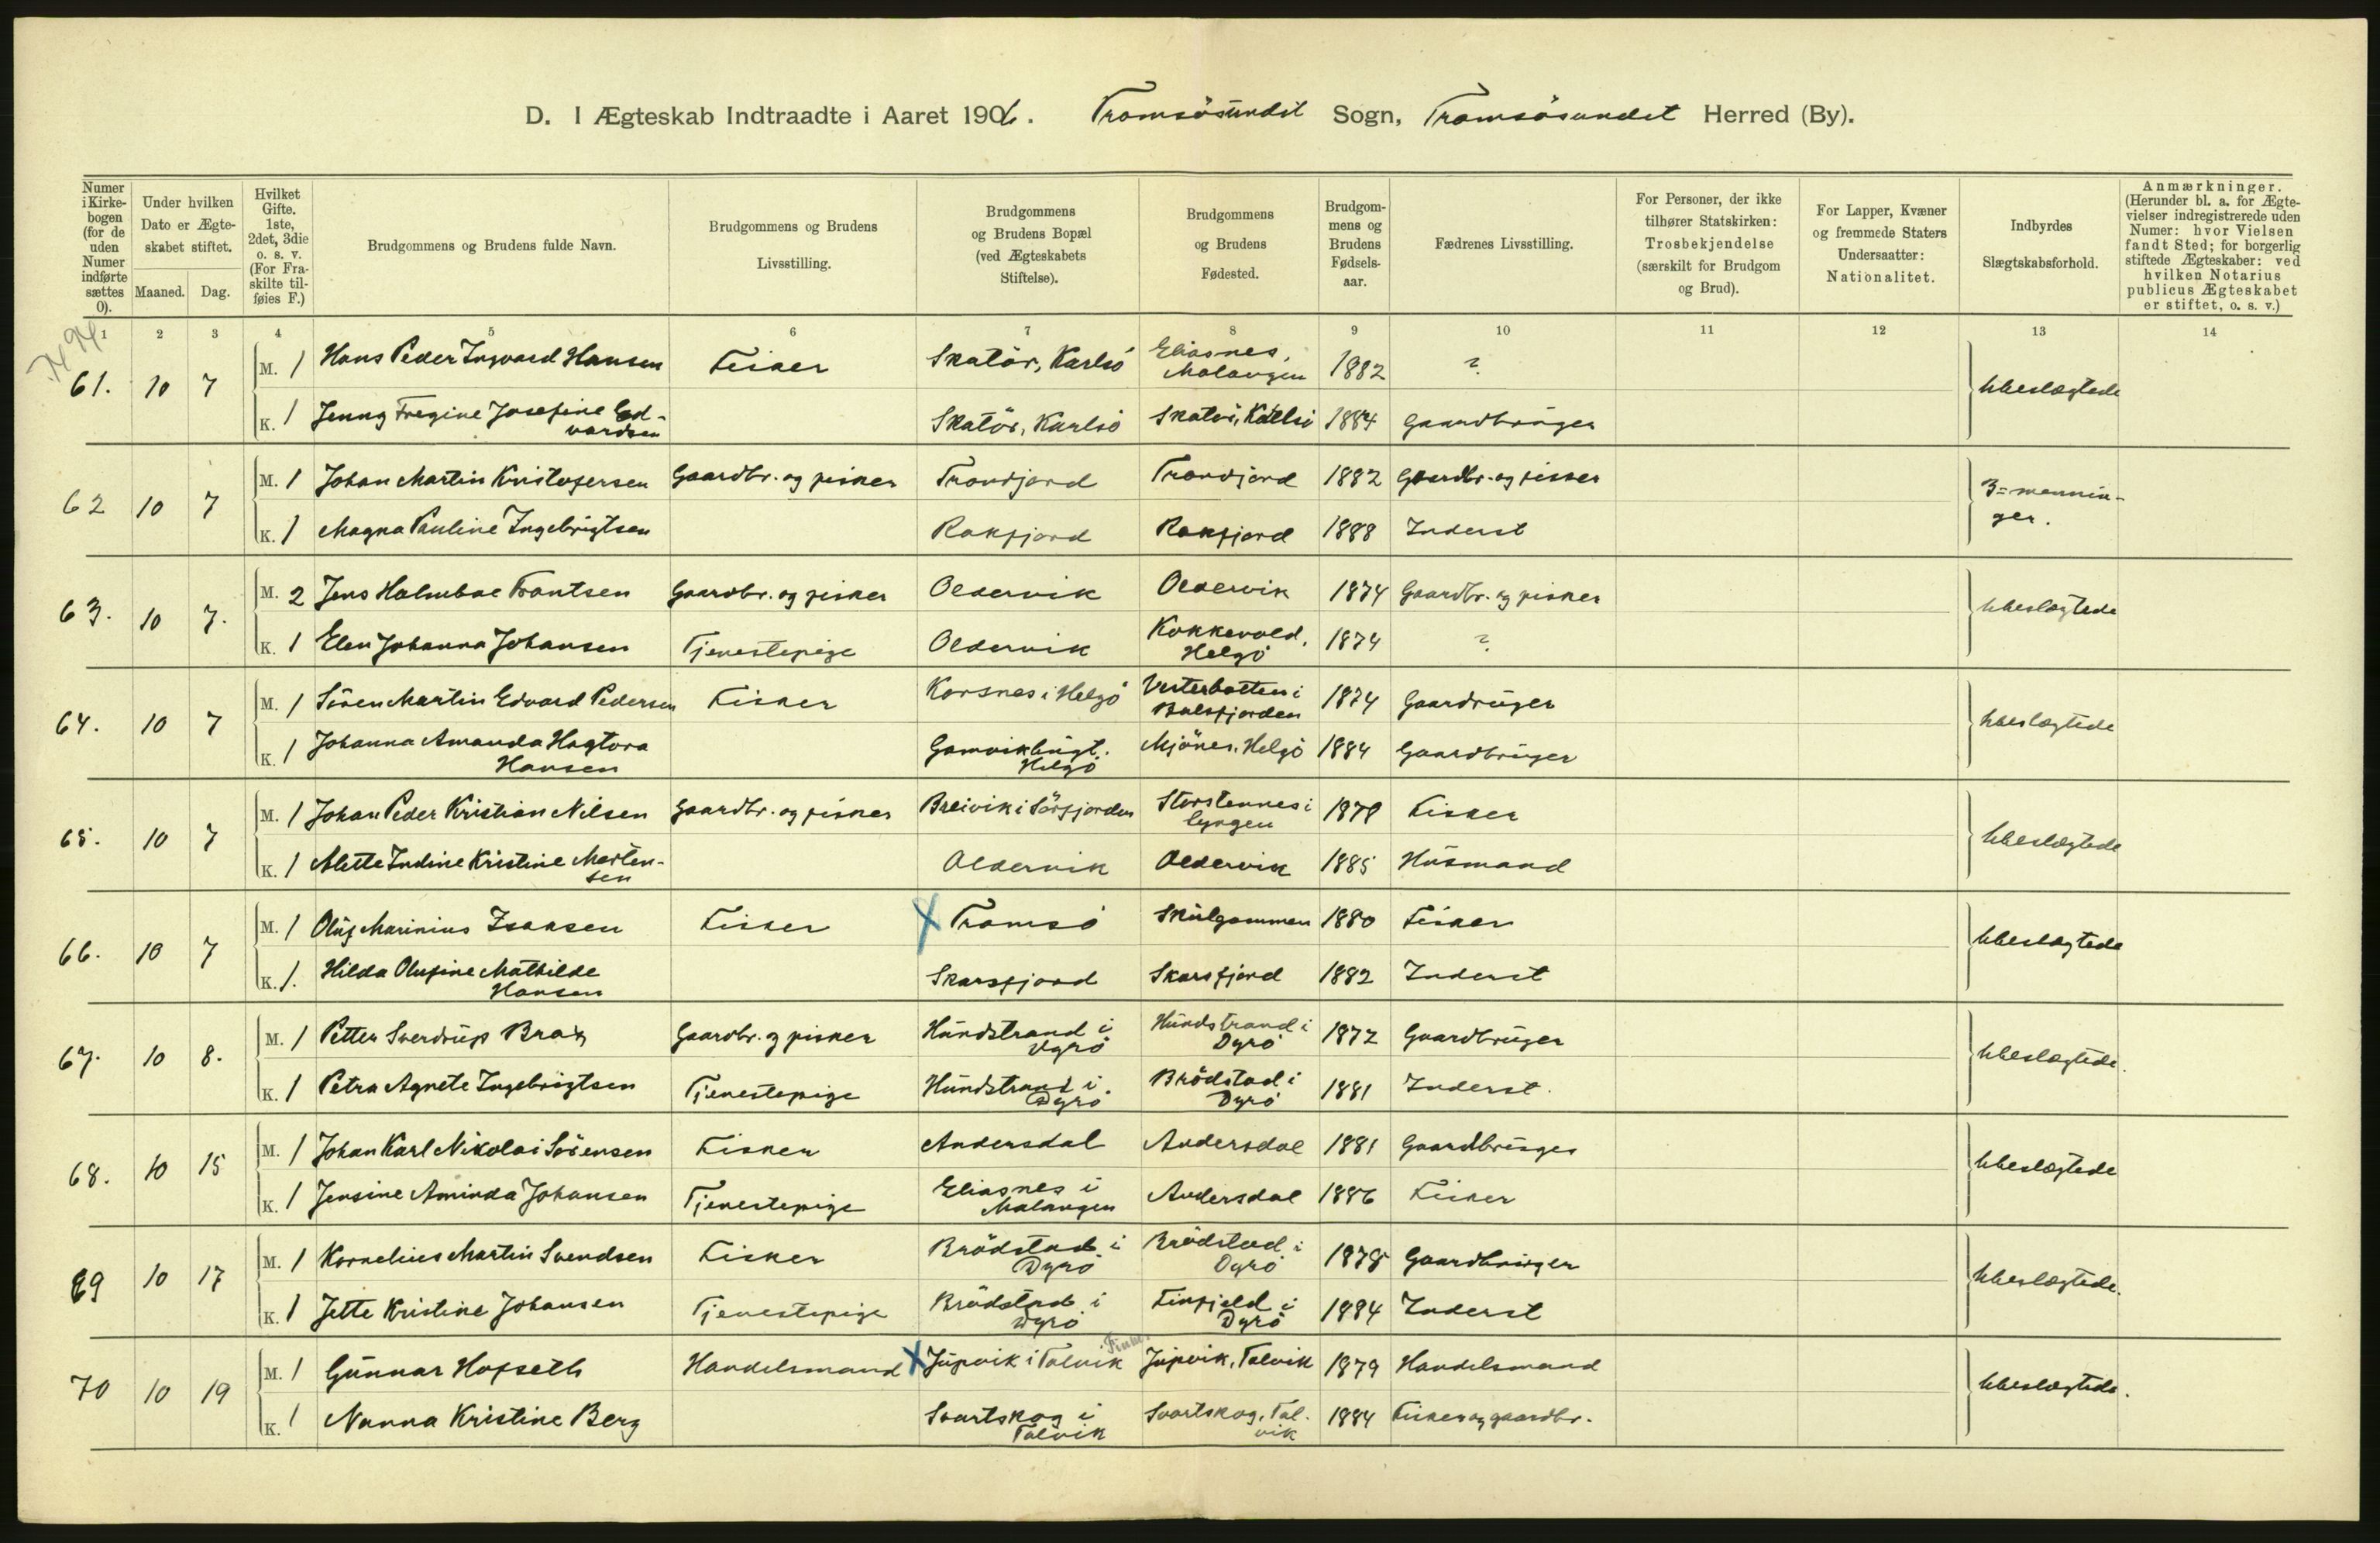 D. I Ægteskab Indtraadte i Aaret 1906. Tromsösundet Sogn, Tromsösundet Herred (By).
Numer i Kirke-bogen (for de uden Numer indførte sættes 0).
Under hvilken Dato er Ægte-skabet stiftet.
Maaned. Dag.
Hvilket Gifte. 1ste, 2det, 3die o. s. v. (For Fra-skilte til-føies F.)
Brudgommens og Brudens fulde Navn.
Brudgommens og Brudens Livsstilling.
Brudgommens og Brudens Bopæl (ved Ægteskabets Stiftelse).
Brudgommens og Brudens Fødested.
Brudgom-mens og Brudens Fødsels-aar.
Fædrenes Livsstilling.
For Personer, der ikke tilhører Statskirken: Trosbekjendelse (særskilt for Brudgom og Brud).
For Lapper, Kvæner og fremmede Staters Undersaatter: Nationalitet.
Indbyrdes Slægtskabsforhold.
Anmærkninger. (Herunder bl. a. for Ægte-vielser indregistrerede uden Numer: hvor Vielsen fandt Sted; for borgerlig stiftede Ægteskaber: ved hvilken Notarius publicus Ægteskabet er stiftet, o. s. v.)
1 2 3 4 5 6 7 8 9 10 11 12 13 14
61. 10 7 M. 1 Hans Peder Ingvard Hansen Fisker Skatör, Karlsö Eliasnes, Malangen 1882 ? Ubeslægtede
K. 1 Jenny Fregine Josefine Ed-vardsen Skatör, Karlsö Skatör, Karlsö 1884 Gaardbrüger
62 10 7 M. 1 Johan Martin Kristofersen Gaardbr. og fisker Tronfjord Tronfjord 1882 Gaardbr. og fisker 3=mennin-ger.
K. 1 Magna Pauline Ingebrigtsen Rakfjord Rakfjord 1888 Inderst
63. 10 7. M. 2 Jens Holmboe Frantsen Gaardbr. og fisker Oldervik Oldervik 1874 Gaardbr. og fisker Ubeslægtede
K. 1 Elen Johanna Johansen Tjenestepige Oldervik Kokkevold, Helgö 1874 ?
64. 10 7 M. 1 Sören Martin Edvard Pedersen Fisker Korsnes i Helgö Vesterbotten i Balsfjorden 1874 Gaardrüger Ubeslægtede
K. 1 Johanna Amanda Hagtora Hansen Gamvikbügt. Helgö Mjönes, Helgö 1884 Gaardbrüger
65. 10 7 M. 1 Johan Peder Kristian Nilsen Gaardbr. og fisker Breivik i Sörfjorden Storstennes i Lyngen 1878 Fisker Ubeslægtede
K. 1 Alette Indine Kristine Marten-sen Oldervik Oldervik 1885 Hüsmand
66. 10 7 M. 1 Olüf Marinius Isaksen Fisker X Tromsö Skülgammen 1880 Fisker Ubeslægtede
K. 1. Hilda Olufine Mathilde Hansen Skarsfjord Skarsfjord 1882 Inderst
67. 10 8. M. 1 Petter Sverdrüp Brox Gaardbr. og fisker Hündstrand i Dyrö Hündstrand i Dyrö 1872 Gaardbrüger Ubeslægtede.
K. 1 Petra Agnete Ingebrigtsen Tjenestepige Hündstrand i Dyrö Brödstad i Dyrö 1881 Inderst.
68. 10 15 M. 1 Johan Karl Nikolai Sörensen Fisker Andersdal Andersdal 1881 Gaardbrüger Ubeslægtede
K. 1 Jensine Aminda Johansen Tjenestepige Eliasnes i Malangen Andersdal 1886 Fisker
69 10 17 M. 1 Kornelius Martin Svendsen Fisker Brödstad i Dyrö Brödstad i Dyrö 1878 Gaardbrüger Ubeslægtede.
K. 1 Jette Kristine Johansen Tjenestepige Brödstad i Dyrö Finfjeld i Dyrö 1884 Inderst
70 10 19 M. 1 Günnar Hofseth Handelsmand X Jüpvik i Talvik Jüpvik, Talvik 1879 Handelsmand Ubeslægtede.
K. 1 Nanna Kristine Berg Svartskog i Talvik Svartskog, Tal-vik 1884 Fisker og gaardbr.